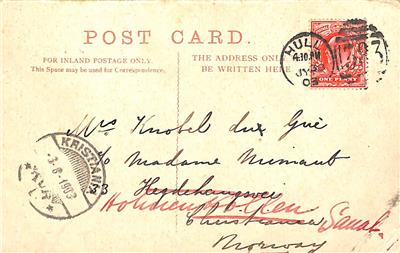 POST CARD.
FOR INLAND POSTAGE ONLY.
This Space may be used for Correspondence.
THE ADDRESS ONLY
BE WRITTEN HERE
HULL
4.10 PM
JY
03
ONE PENNY
KRISTIANIA
3-8-1903
Mrs Knobel
c/o Madame
Holmenkollen Sanat.
Christiania
Norway